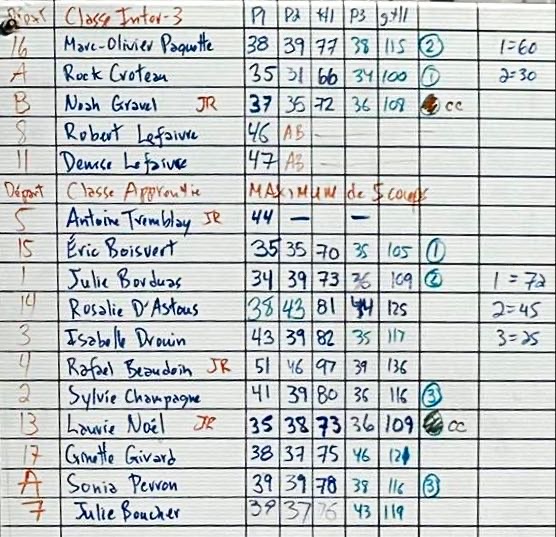 Départ Classe Inter-3 P1 P2 +/1 P3 g+/1
16 Marc-Olivier Paquette 38 39 77 38 115 2 1=60
A Rock Croteau 35 31 66 34 100 1 2=30
B Noah Gravel JR 37 35 72 36 108 cc
8 Robert Lefaivre 46 AB — — —
11 Denise Lefaivre 47 AB
Départ Classe Apprentie MAXIMUM de 5 coups
5 Antoine Tremblay JR 44 — —
15 Éric Boisvert 35 35 70 35 105 1
1 Julie Borduas 34 39 73 36 109 2 1=72
14 Rosalie D'Astous 38 43 81 44 125 2=45
3 Isabelle Drouin 43 39 82 35 117 3=25
4 Rafael Beaudoin JR 51 46 97 39 136
2 Sylvie Champagne 41 39 80 36 116 3
13 Laurie Noël JR 35 38 73 36 109 cc
17 Ginette Givard 38 37 75 46 121
A Sonia Perron 39 39 78 38 116 3
7 Julie Boucher 39 37 76 43 119